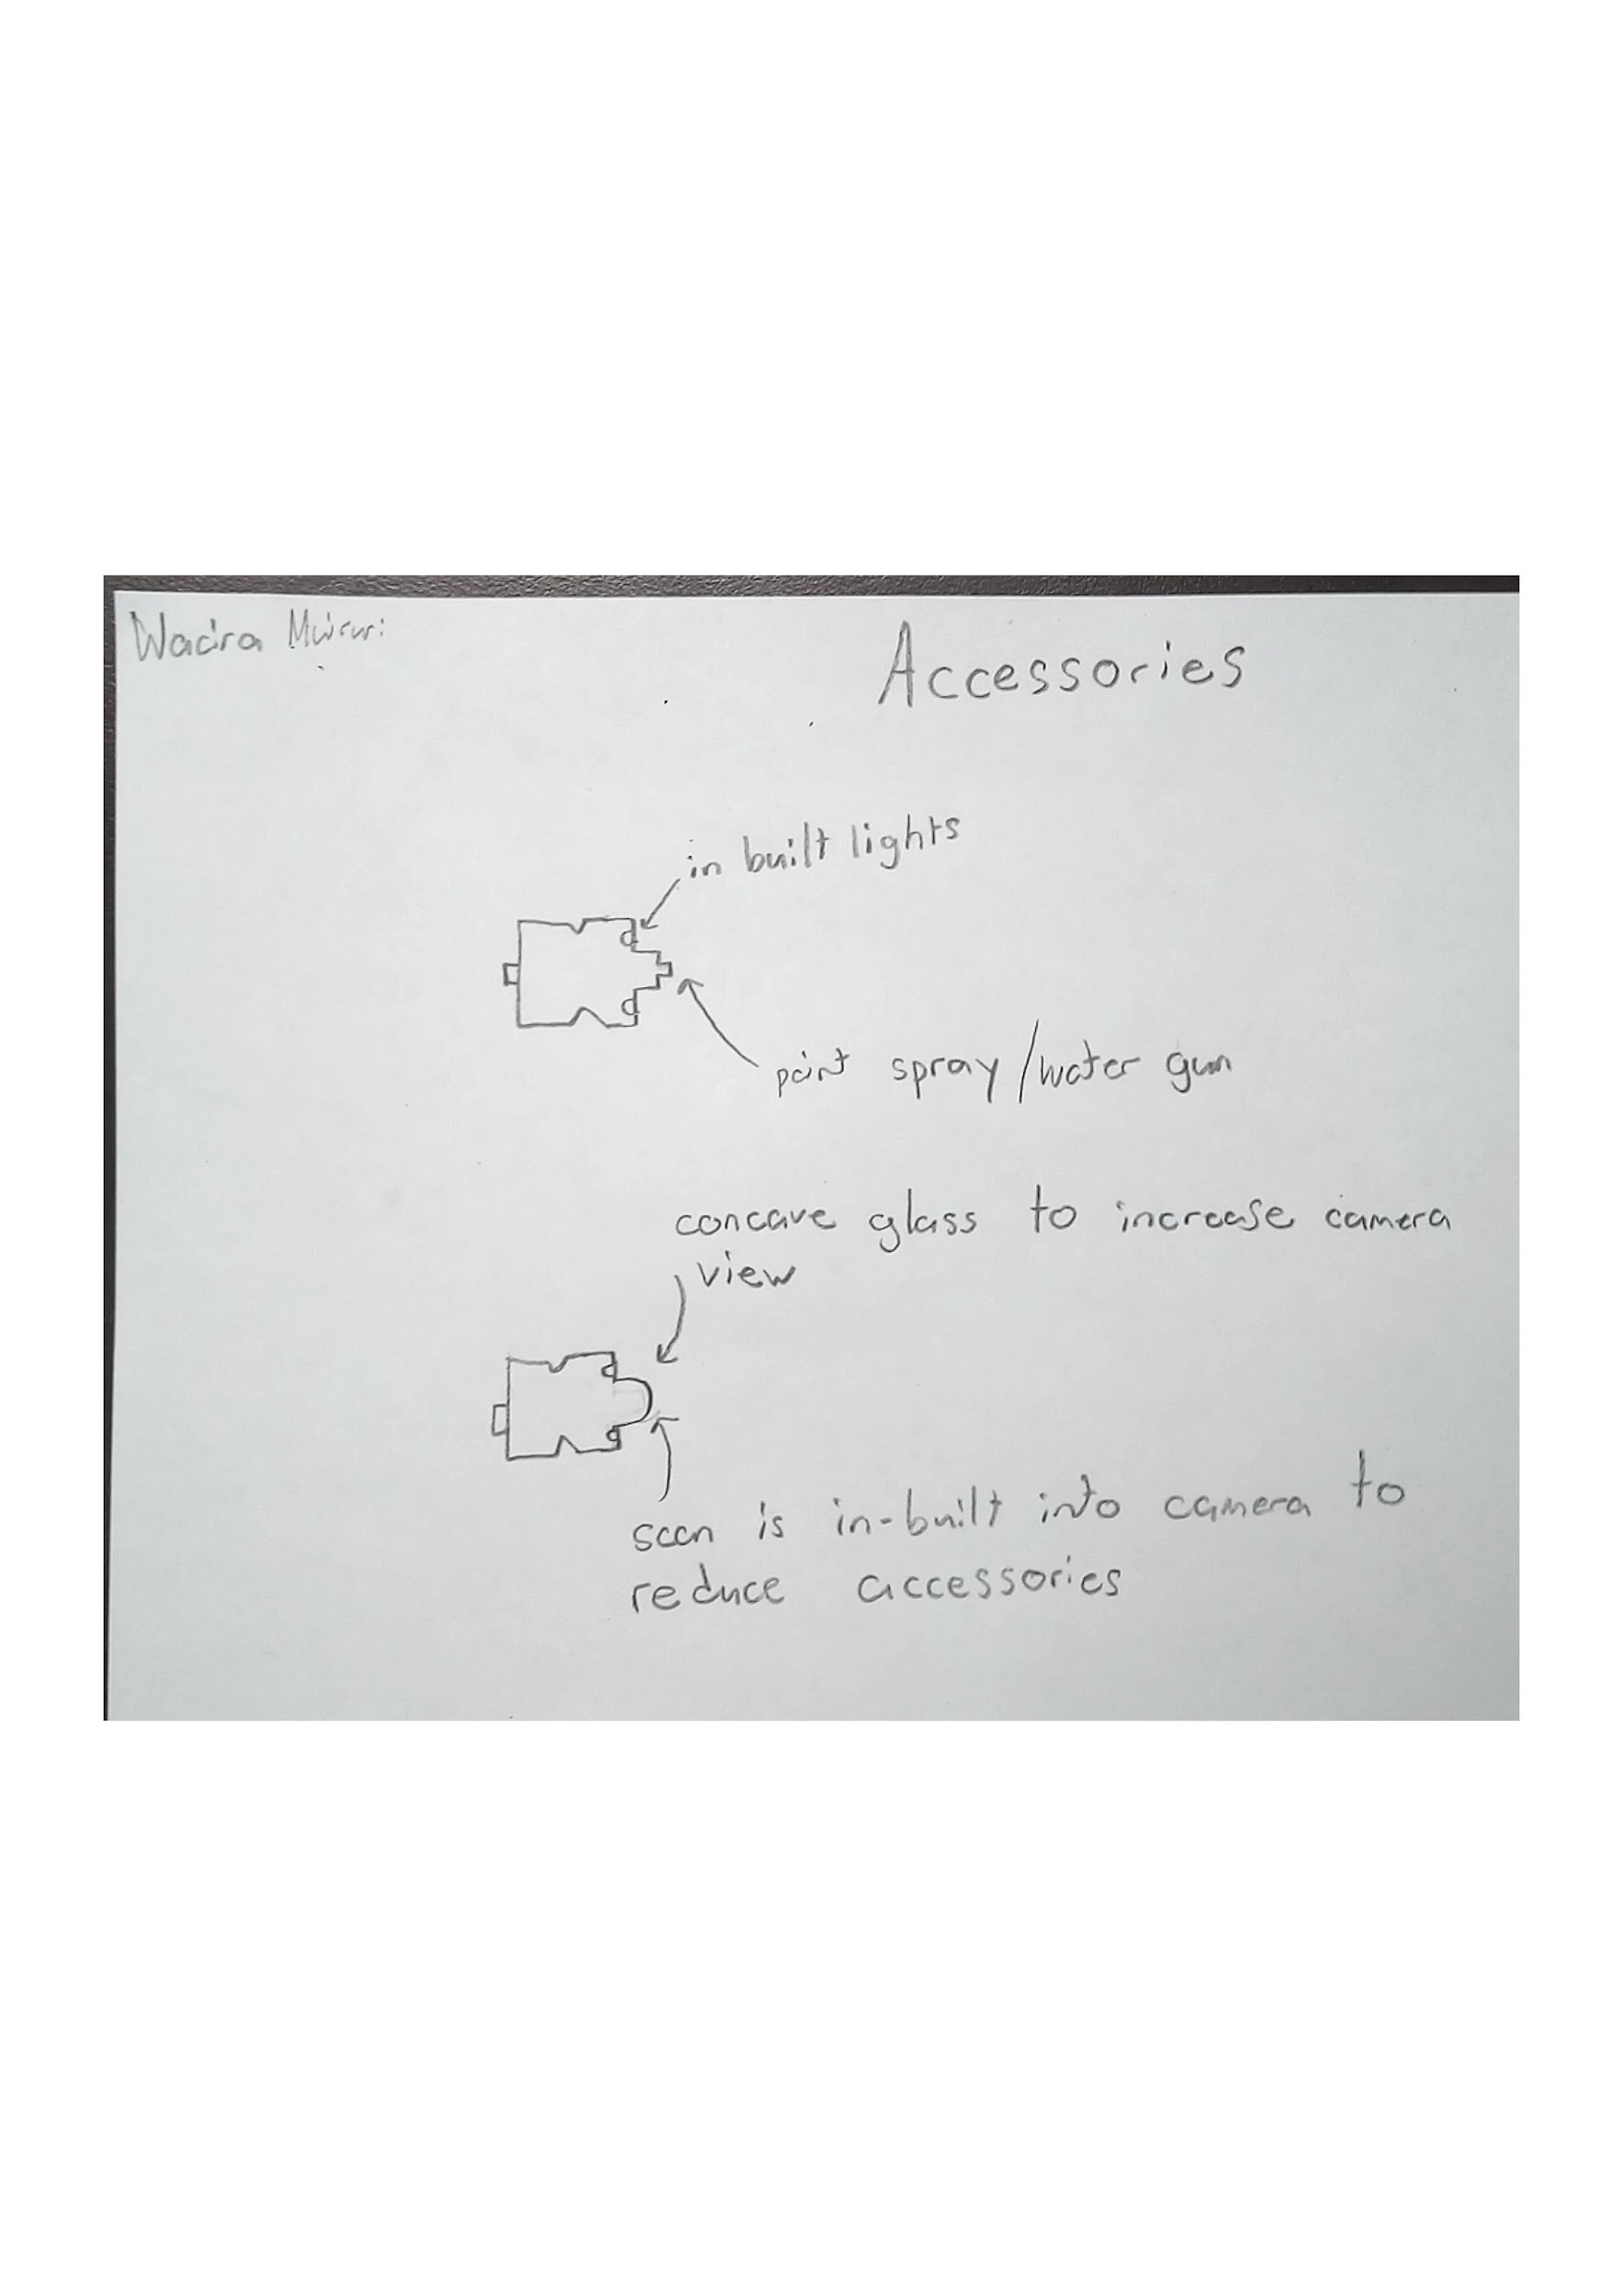 Wacira Muriuri
Accessories
in built lights
paint spray/water gun
concave glass to increase camera
view
scan is in-built into camera to
reduce accessories